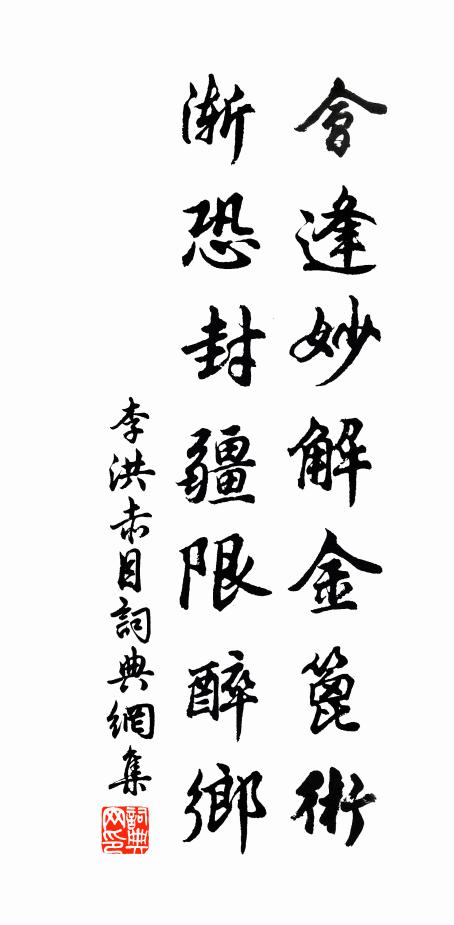 會逢妙解金篦術
漸恐封疆限醉鄉
李洪赤目詞典網集
詞典网印